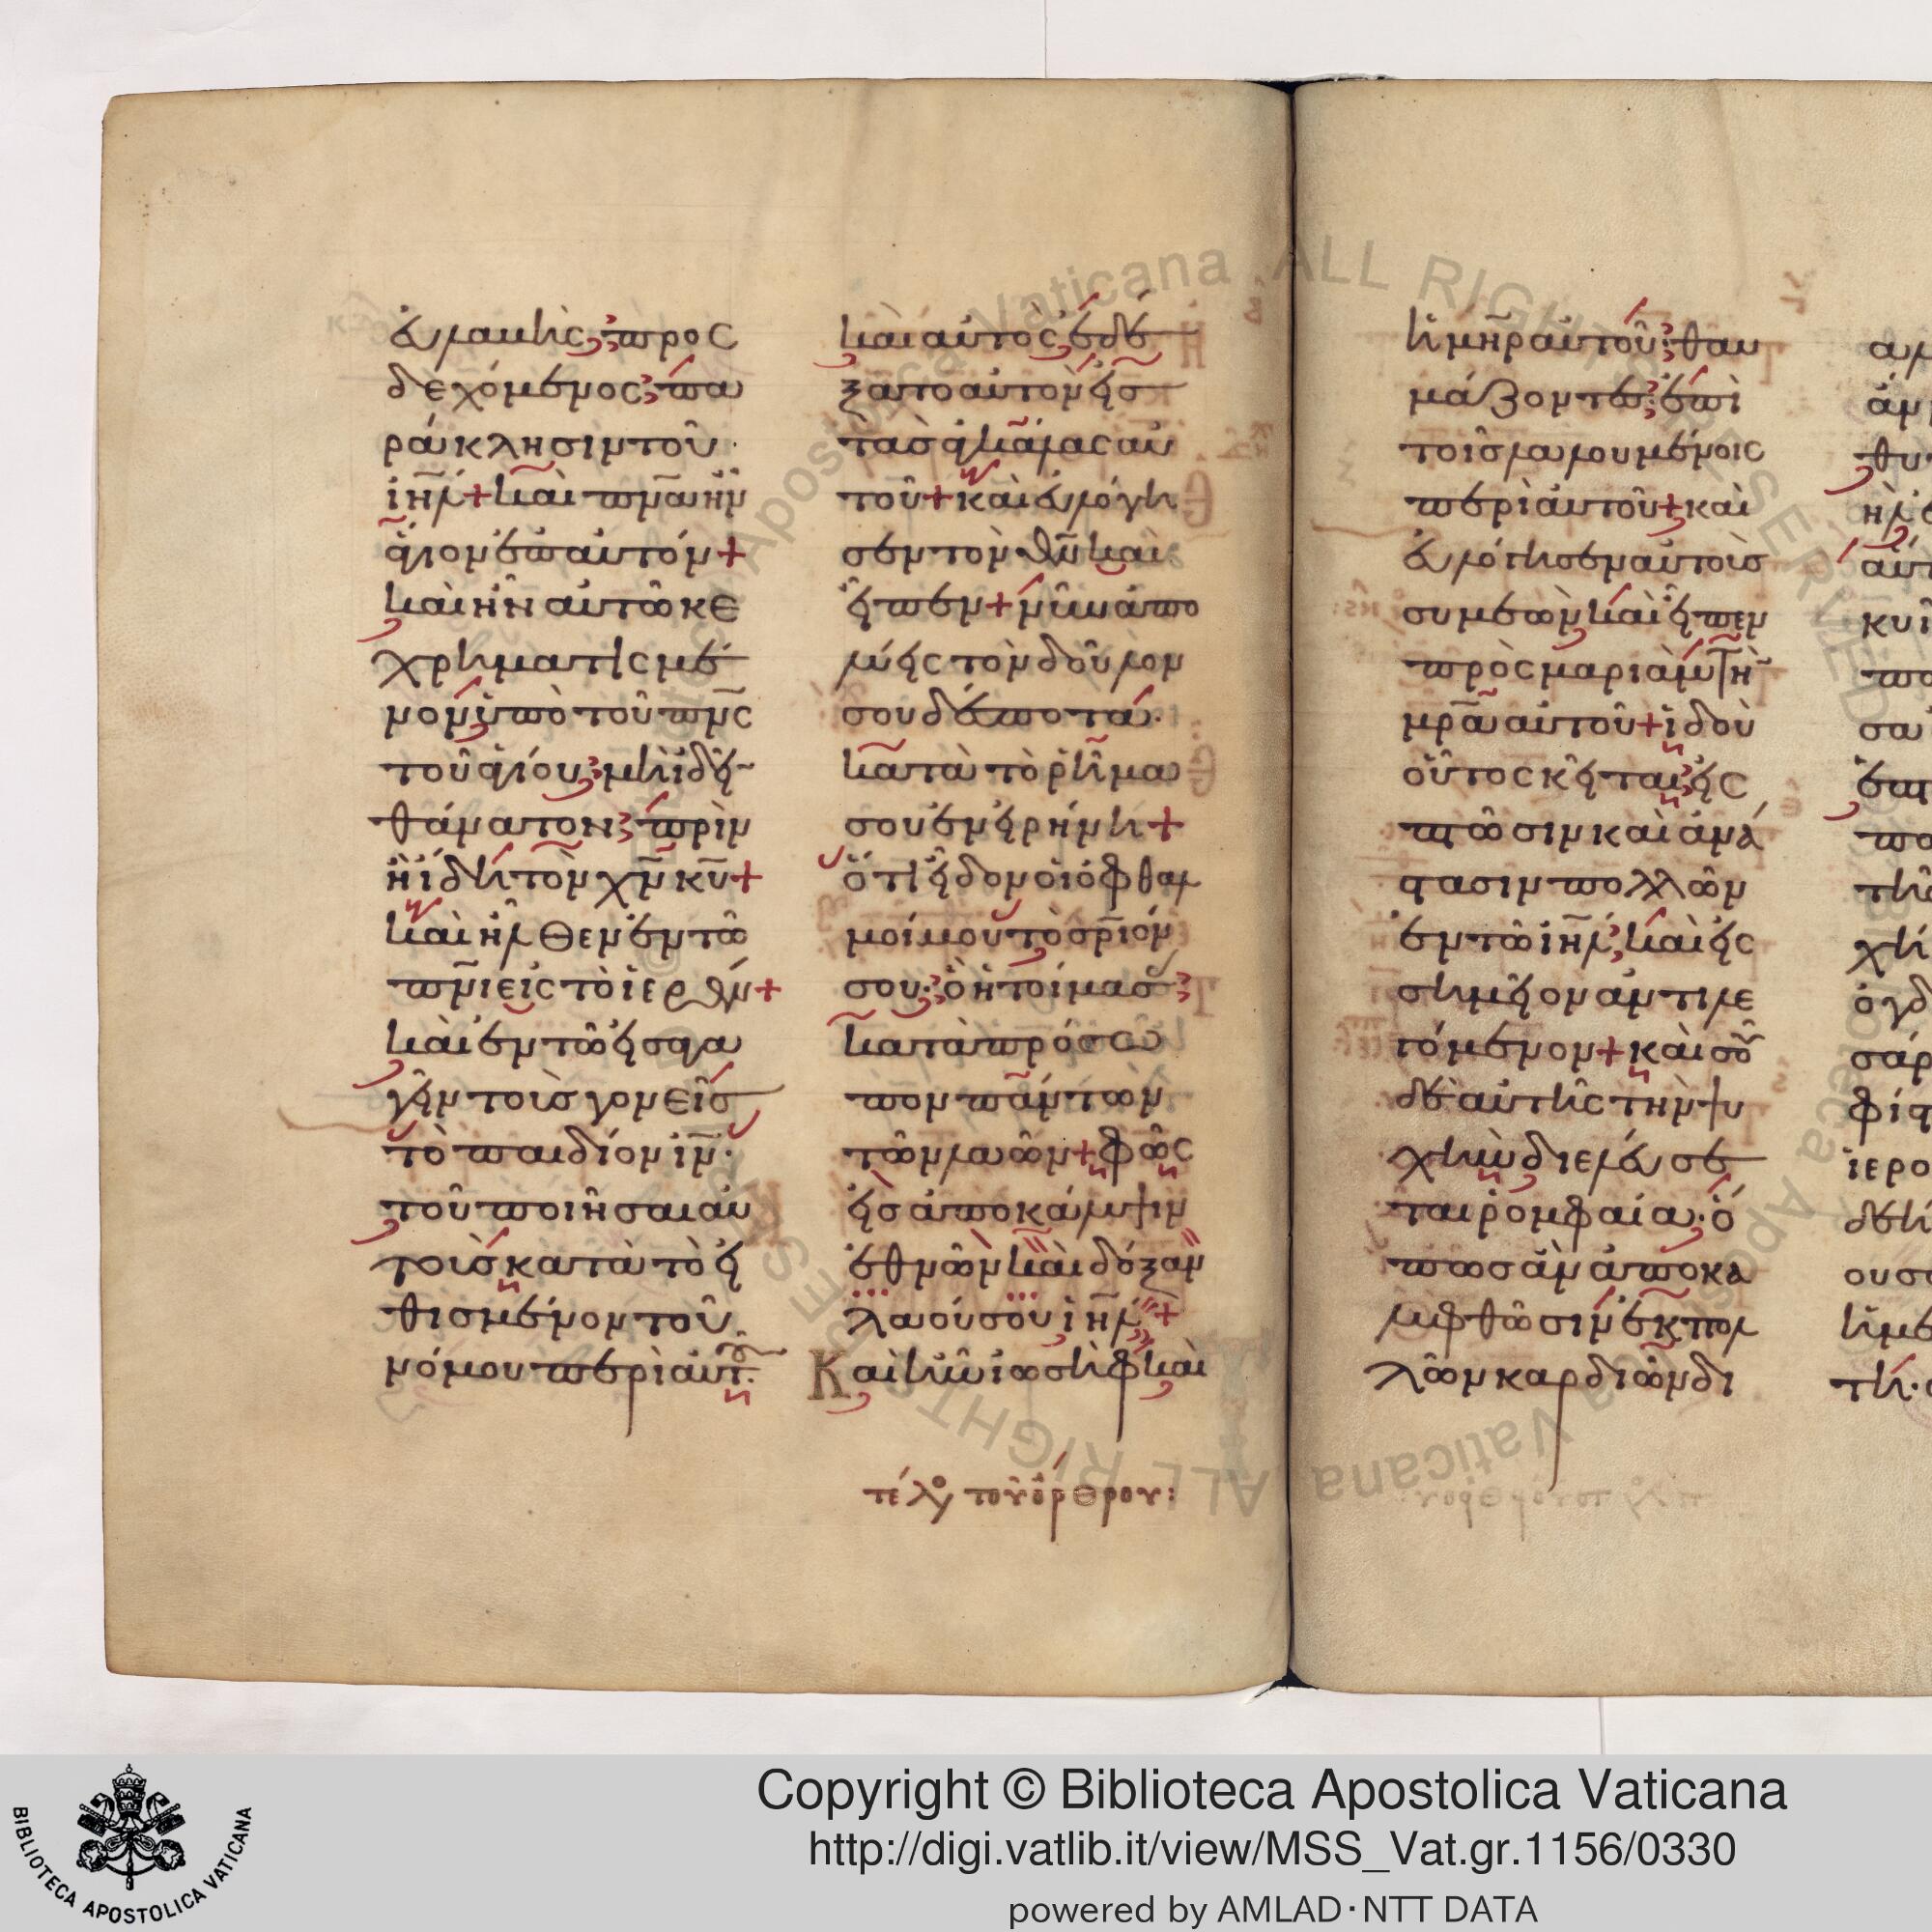 εὐλαβὴς προσ
δεχόμενος πα
ράκλησιν τοῦ
ιη̅λ + καὶ πν̅α ἦν
ἅγιον ἐπ αὐτόν +
καὶ ἦν αὐτῶ κε
χρηματισμέ
νον ὑπὸ τοῦ πν̅ς
τοῦ ἁγίου μὴ ἰδεῖ
θάνατον πρὶν
ἢ ἴδη τὸν χ̅ν κ̅υ +
καὶ ἦλθεν ἐν τῶ
πν̅ι εἰς τὸ ἱερόν +
καὶ ἐν τῶ εἰσαγα
γεῖν τοὺς γονεῖσ
τὸ παιδίον ι̅ν ·
τοῦ ποιῆσαι αὐ
τοὺς κατὰ τὸ εἰ
θισμένον τοῦ
νόμου περὶ αὐτοῦ ·
καὶ αὐτὸς ἐδέ
ξατο αὐτὸν εἰσ
τὰσ ἀγκάλας αὐ
τοῦ + καὶ εὐλόγη
σεν τὸν θ̅ν καὶ
εἶπεν + νῦν ἀπο
λύεις τὸν δοῦλον
σου δέσποτα ·
κατὰ τὸ ῥῆμα
σου ἐν εἰρήνη +
ὅτι εἶδον οἱ ὀφθαλ
μοί μου τὸ σρ̅ιόν
σου · ὃ ἡτοίμασας
κατὰ πρόσω
πον πάντων
τῶν λαῶν + φῶς
εἰσ ἀποκάλυψιν
ἐθνῶν καὶ δόξαν
λαοῦ σου ιη̅λ +
Καὶ ἦν ἰωσὴφ καὶ
τέλος τοῦ ὄρθρου :
ἡ μη̅ρ αὐτοῦ · θαυ
μάζοντες ἐπὶ
τοῖσ λαλουμένοις
περὶ αὐτοῦ + καὶ
εὐλόγησεν αὐτοὺσ
συμεὼν καὶ εἶπεν
πρὸς μαριὰμ τὴν
μρ̅α αὐτοῦ + ἰδοὺ
οὗτος κεῖται εἰς
πτῶσιν καὶ ἀνά
στασιν πολλῶν
ἐν τῶ ιη̅λ καὶ εἰς
σημεῖον ἀντιλε
γόμενον + καὶ σοῦ
δὲ αὐτῆς τὴν ψυ
χὴν διελεύσε
ται ῥομφαία · ὅ
πωσ ἂν ἀποκα
λυφθῶσιν ἐκ πολ
λῶν καρδιῶν δι
Copyright © Biblioteca Apostolica Vaticana
http://digi.vatlib.it/view/MSS_Vat.gr.1156/0330
powered by AMLAD·NTT DATA
BIBLIOTECA APOSTOLICA VATICANA